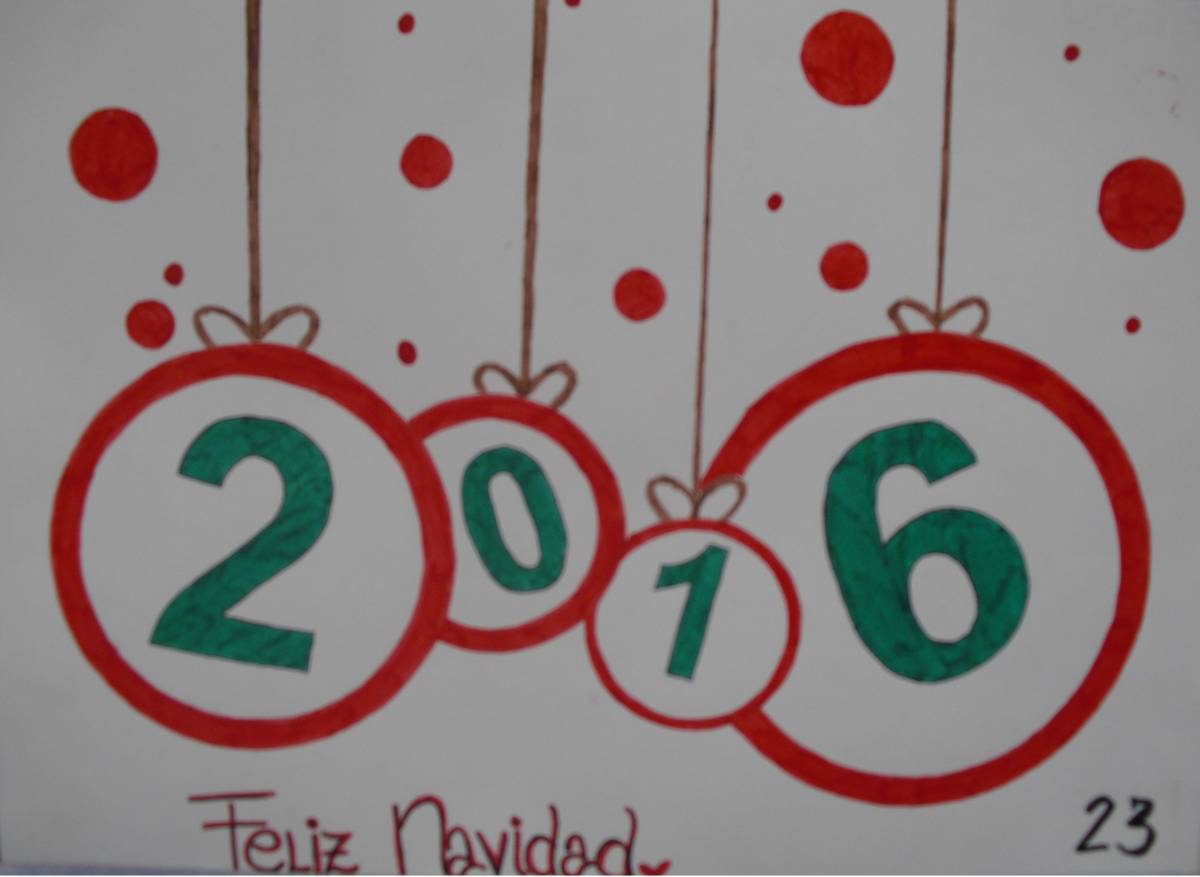 2016
Feliz Navidad
23